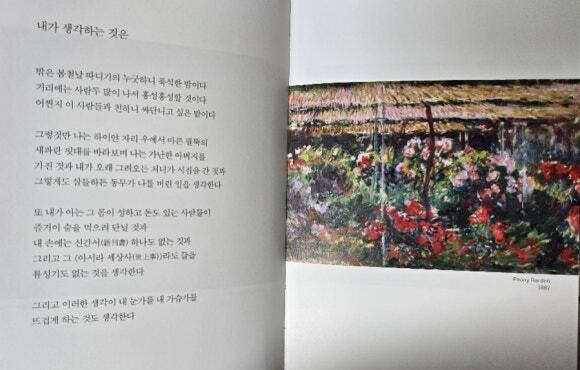 내가 생각하는 것은
밖은 봄철날 따디기의 누굿하니 푹석한 밤이다
거리에는 사람두 많이 나서 흥성흥성할 것이다
어쩐지 이 사람들과 친하니 싸단니고 싶은 밤이다
그렇것만 나는 하이얀 자리 우에서 마른 팔뚝의
새파란 핏대를 바라보며 나는 가난한 아버지를
가진 것과 내가 오래 그려오든 처녀가 시집을 간 것과
그렇게도 살틀하든 동무가 나를 버린 일을 생각한다
또 내가 아는 그 몸이 성하고 돈도 있는 사람들이
즐거이 술을 먹으려 단닐 것과
내 손에는 신간서(新刊書) 하나도 없는 것과
그리고 그 〈아서라 세상사(世上事)〉라도 들을
류성기도 없는 것을 생각한다
그리고 이러한 생각이 내 눈가를 내 가슴가를
뜨겁게 하는 것도 생각한다
Peony Garden
1887